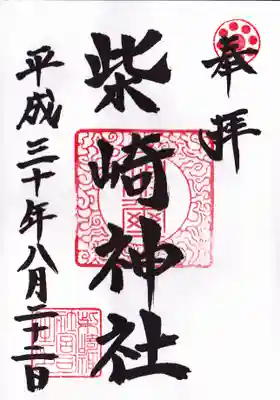 奉拝
柴崎神社
平成三十年八月二十二日